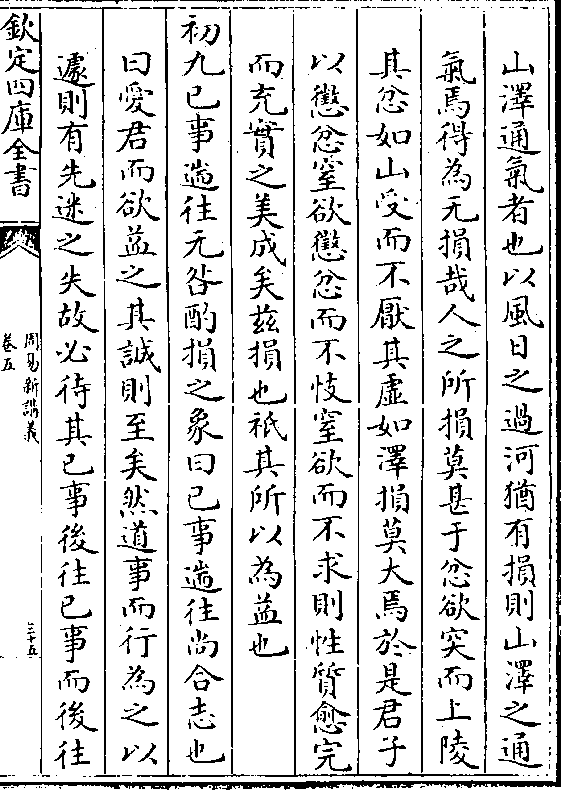 山澤通氣者也以風日之過河猶有損則山澤之通
氣焉得為无損哉人之所損莫甚于忿欲突而上陵
其忿如山受而不厭其虛如澤損莫大焉於是君子
以懲忿窒欲懲忿而不忮窒欲而不求則性質愈完
而充實之美成矣兹損也祇其所以為益也
初九已事遄往无咎酌損之象曰已事遄往尚合志也
曰愛君而欲益之其誠則至矣然道事而行為之以
遽則有先迷之失故必待其已事後往已事而後往
欽定四庫全書
周易新講義
卷五
三十五